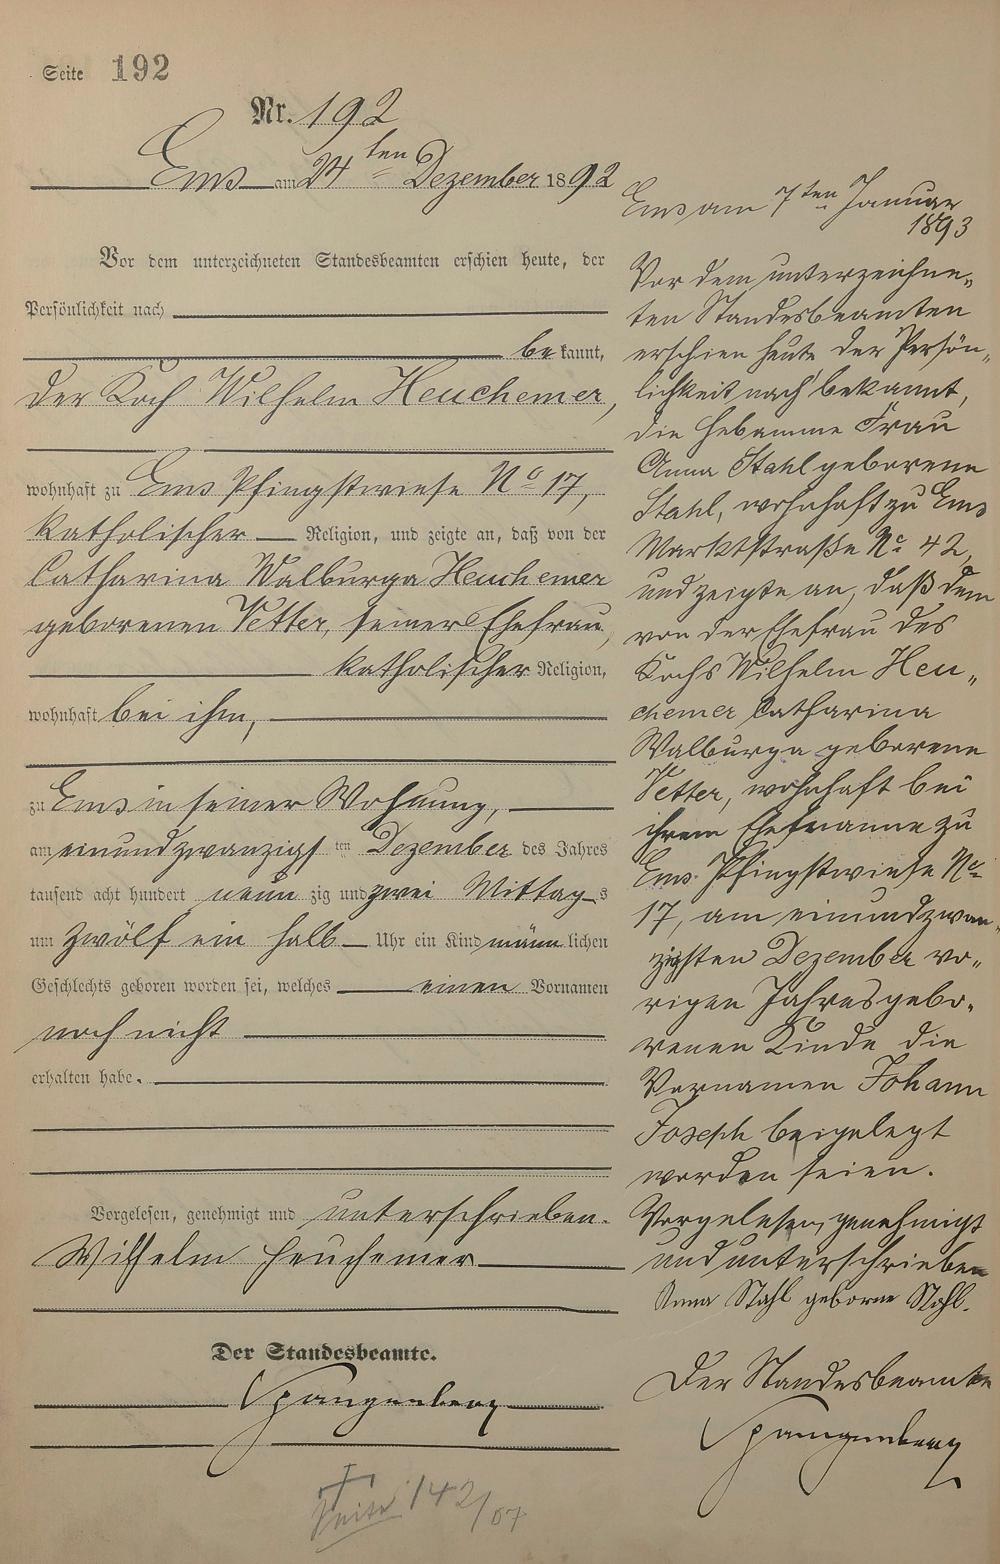 Seite 192
Nr. 192
Ems am 24ten Dezember 1892
Vor dem unterzeichneten Standesbeamten erschien heute, der
Persönlichkeit nach
bekannt,
der Koch Wilhelm Heuchemer,
wohnhaft zu Ems Pfingstwiese No 17,
katholischer Religion, und zeigte an, daß von der
Catharina Walburga Heuchemer
geborenen Vetter, seiner Ehefrau,
katholischer Religion,
wohnhaft bei ihm,
zu Ems in seiner Wohnung,
am einundzwanzigsten Dezember des Jahres
tausend acht hundert neunzig und zwei Mittags
um zwölf ein halb Uhr ein Kind männlichen
Geschlechts geboren worden sei, welches einen Vornamen
noch nicht
erhalten habe.
Vorgelesen, genehmigt und unterschrieben.
Wilhelm Heuchemer
Der Standesbeamte.
Spangenberg
Ems am 7ten Januar
1893
Vor dem unterzeichne„
ten Standesbeamten
erschien heute der Persön„
lichkeit nach bekannt,
die Hebamme Frau
Anna Stahl geborene
Stahl, wohnhaft zu Ems
Marktstraße No 42,
und zeigte an, daß dem
von der Ehefrau des
Kochs Wilhelm Heu„
chemer Catharina
Walburga geborene
Vetter, wohnhaft bei
ihrem Ehemanne zu
Ems Pfingstwiese No
17, am einundzwan„
zigsten Dezember vo„
rigen Jahres gebo„
renen Kinde die
Vornamen Johann
Joseph beigelegt
worden seien.
Vorgelesen, genehmigt
und unterschrieben
Anna Stahl geborne Stahl.
Der Standesbeamte
Spangenberg
† Seite 142/07